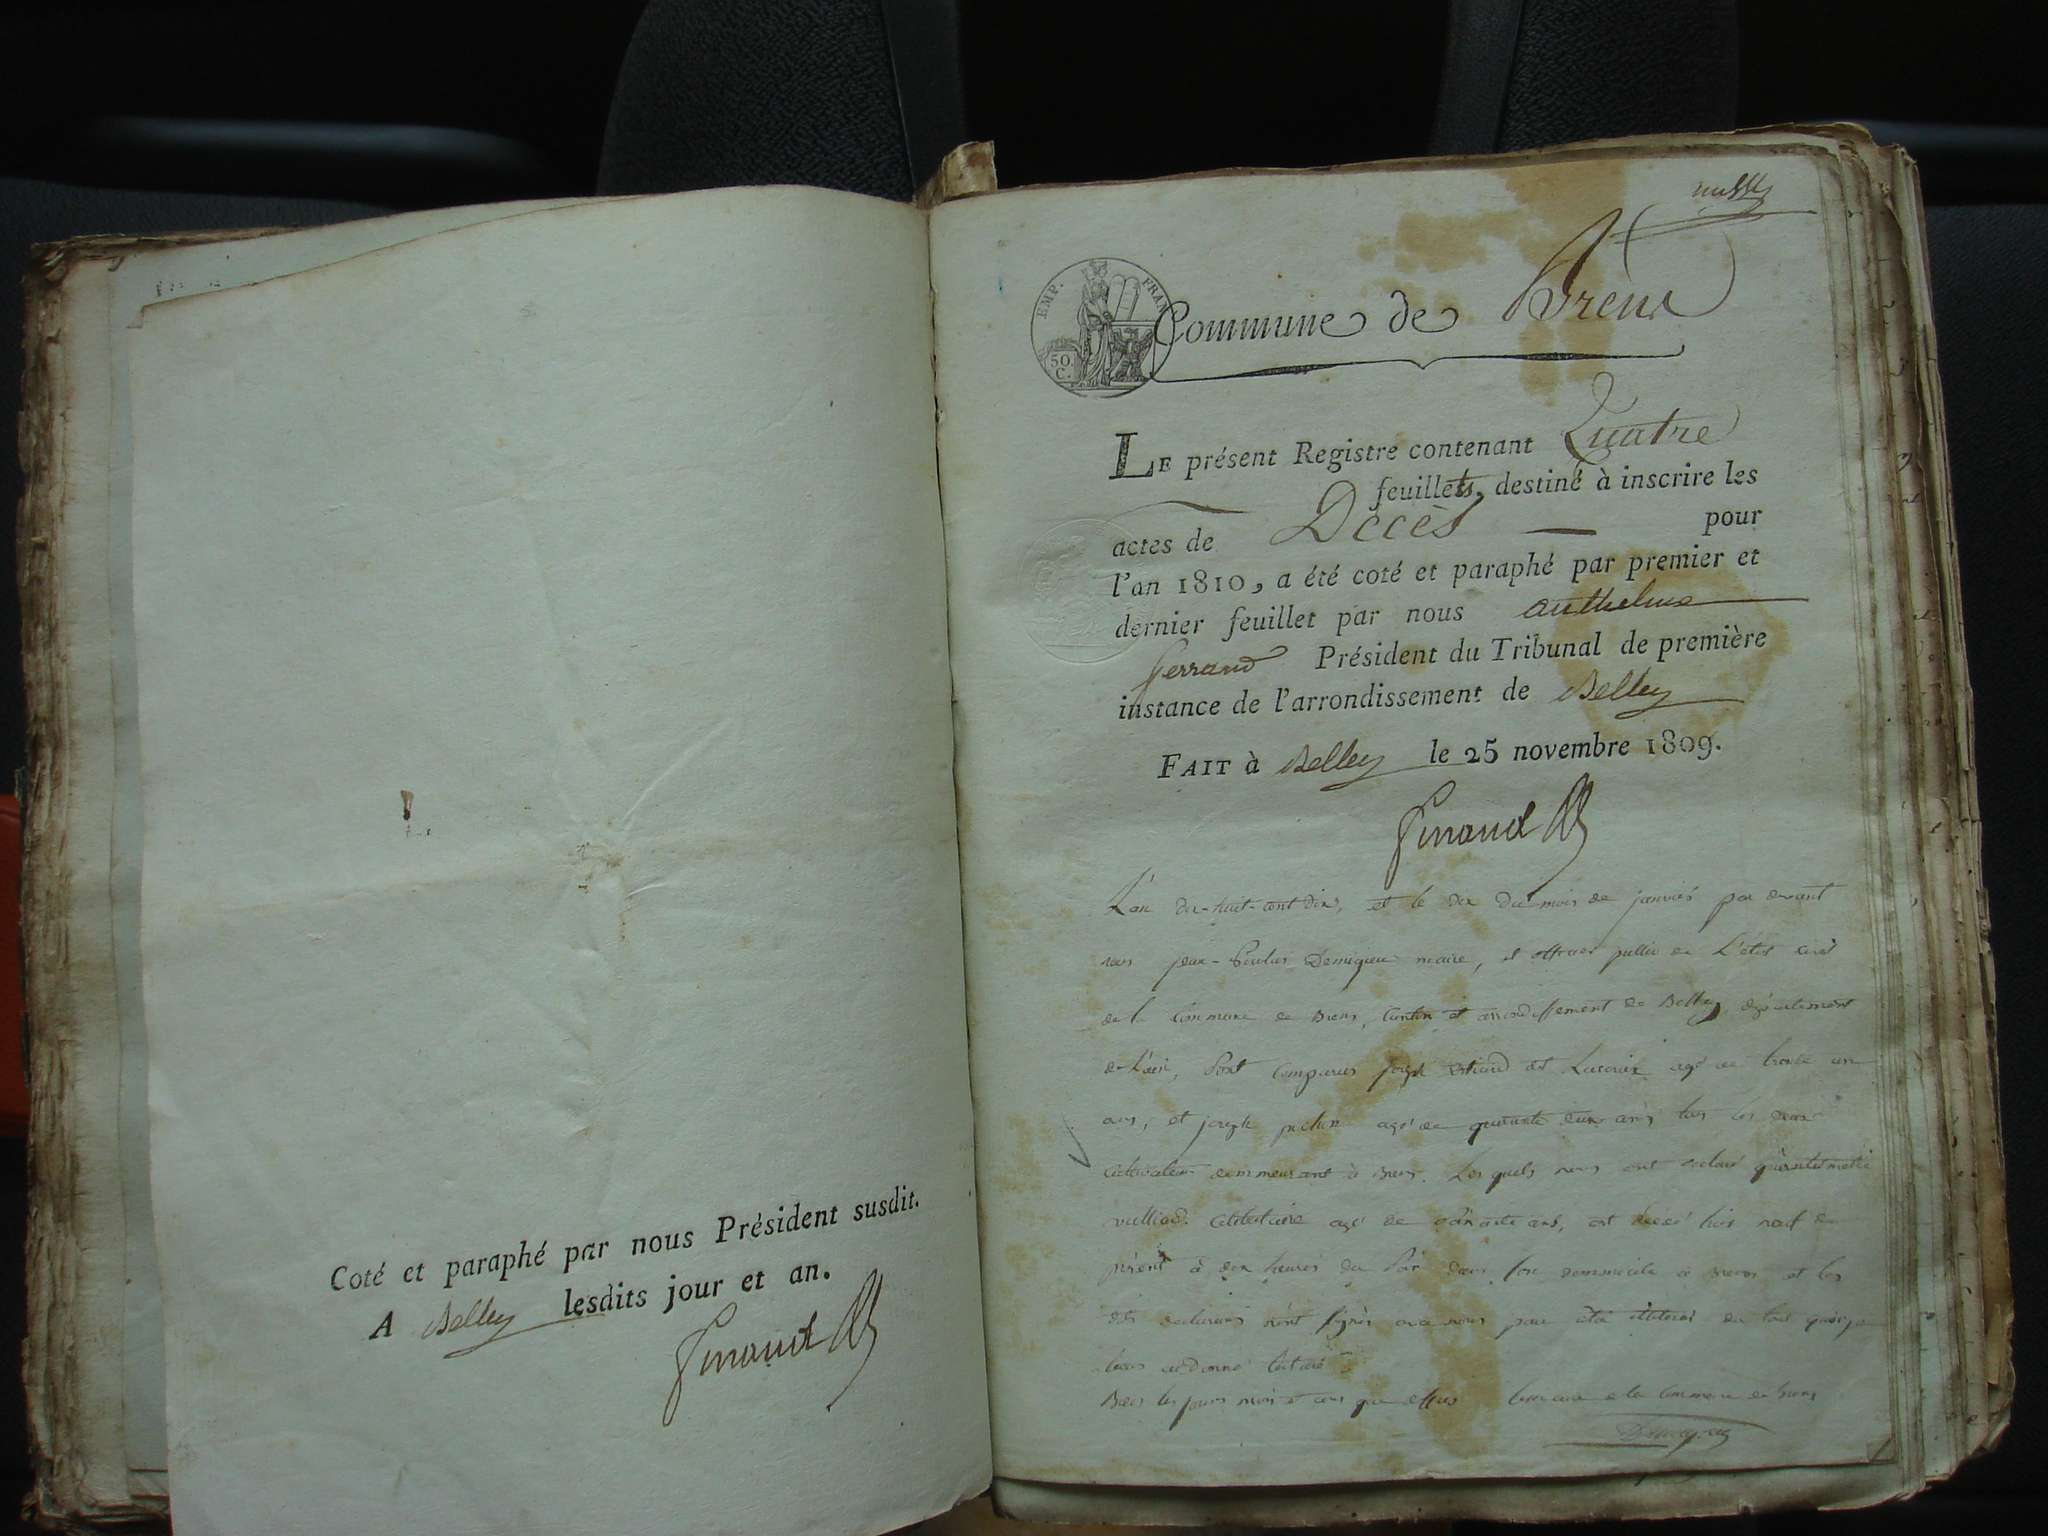 Coté et paraphé par nous Président susdit.
A Belley lesdits jour et an.
EMP. FRAN
50
C.
Commune de Brens
LE présent Registre contenant Quatre
feuillets, destiné à inscrire les
actes de Décès pour
l'an 1810, a été coté et paraphé par premier et
dernier feuillet par nous anthelme
ferrand Président du Tribunal de première
instance de l'arrondissement de Belley
FAIT à Belley le 25 novembre 1809.
L'an dix-huit-cent dix, et le dix du mois de janvier par devant
maire, et officier public de L'état civil
de la Commune de Brens, Canton et arrondissement de Belley, département
de L'ain, Sont Comparus joseph agé de trente un
ans, et joseph agé de quarante deux ans tous les deux
cultivateurs demmeurant à Brens. Les quels nous ont déclaré
agé de ans, est décédé hier neuf du
présent à dix heures du soir dans son dommicile à Brens et les
avec nous
donné lecture
jours mois et ans que dessus Le maire de la Commune de Brens